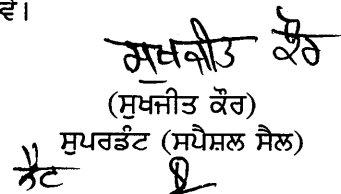 ਵੇ।
ਸੁਖਜੀਤ ਕੌਰ
(ਸੁਖਜੀਤ ਕੌਰ)
ਸੁਪਰਡੰਟ (ਸਪੈਸ਼ਲ ਸੈਲ)